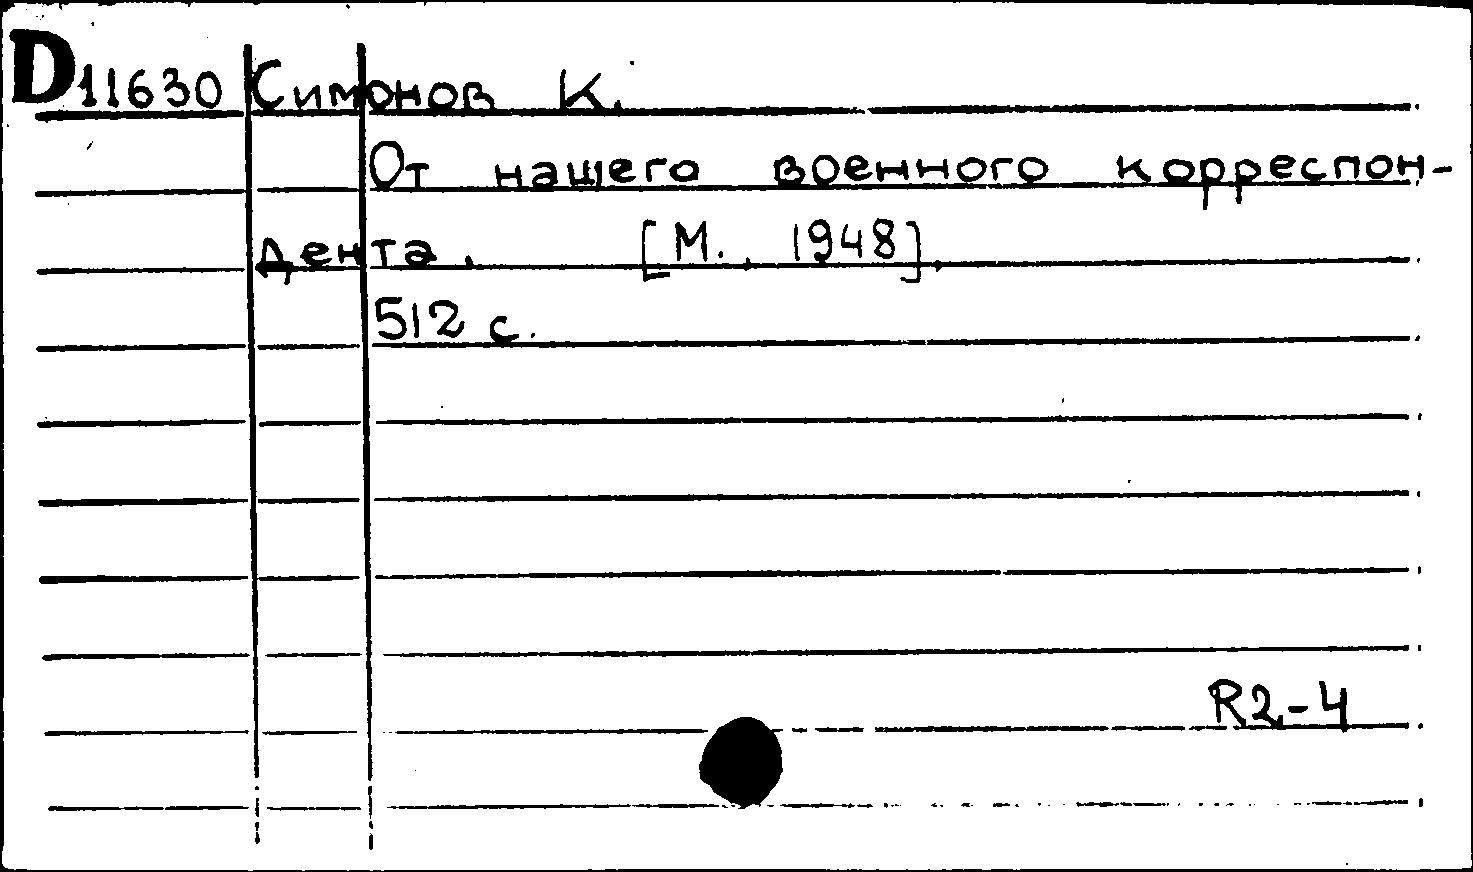 D11630 Симонов К.
От нашего военного корреспон-
дента. [М., 1948].
512 с.
R2-4